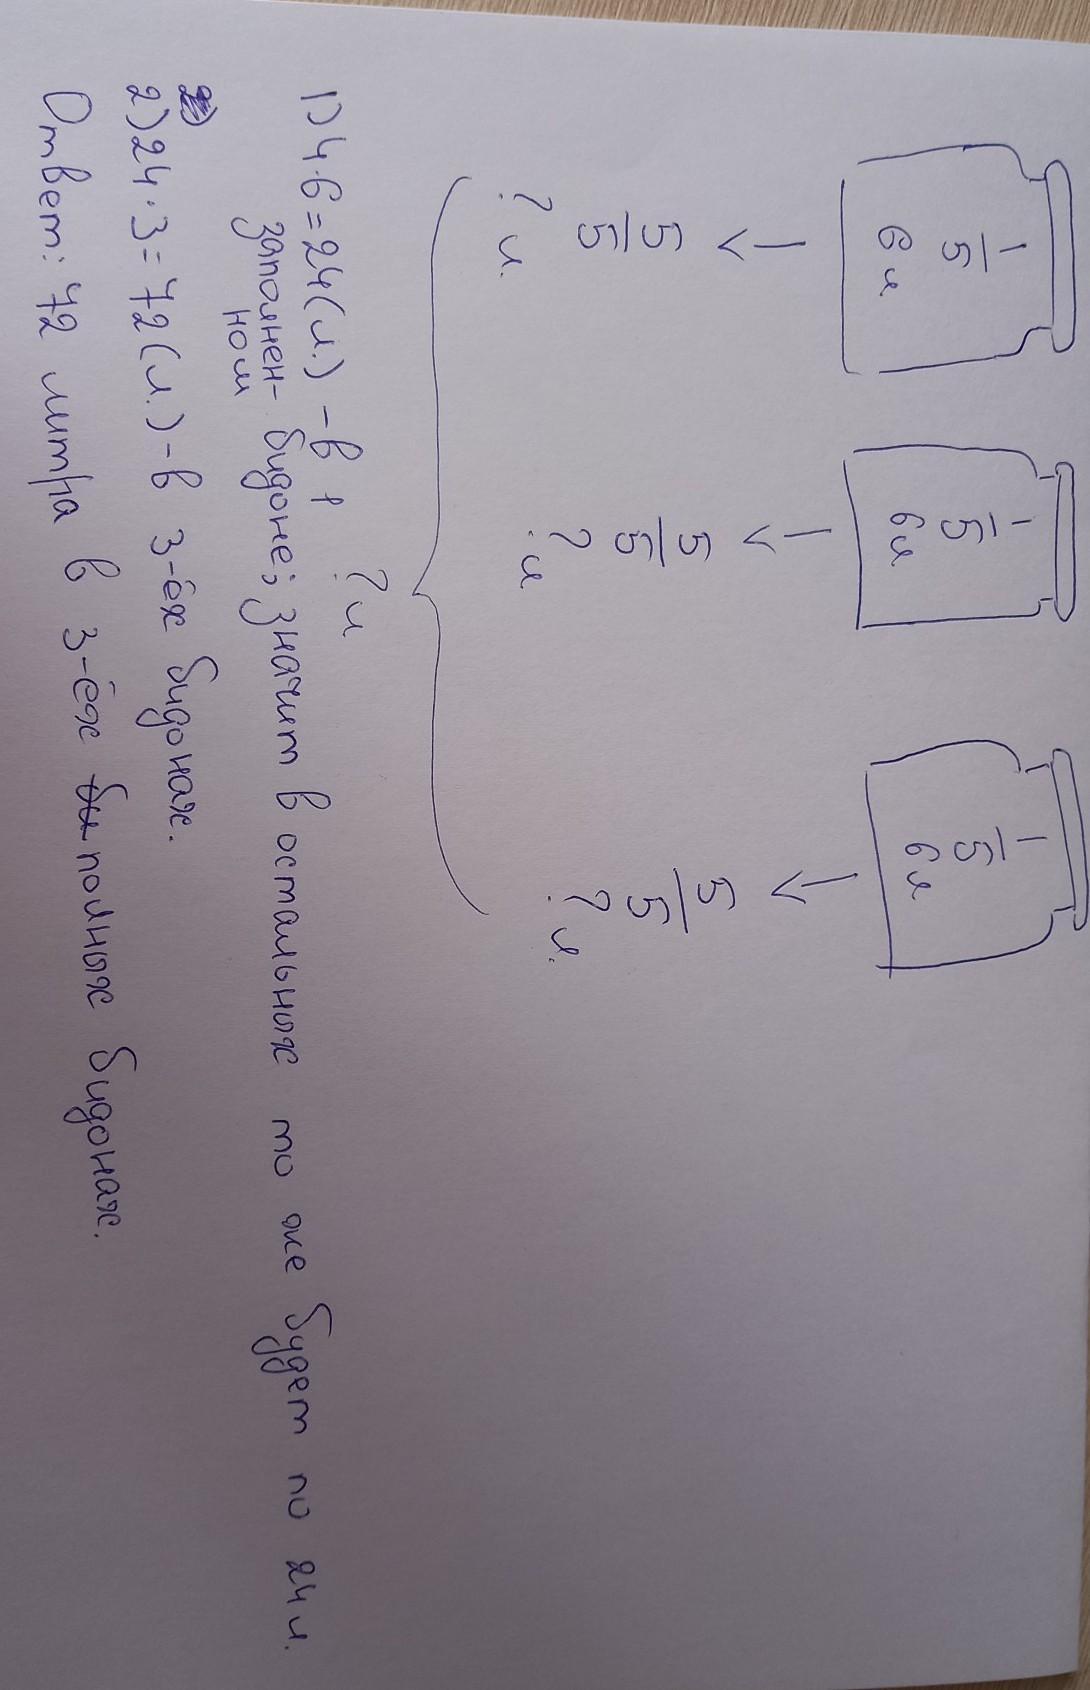 1/5 1/5 1/5
6 л 6 л 6 л
↓ ↓ ↓
5/5 5/5 5/5
? л. ? л. ? л.
? л
1) 4·6=24(л.) – в 1
заполнен- бидоне; значит в остальных то же будет по 24 л.
ном
2)
2) 24·3=72(л.) – в 3-ёх бидонах.
Ответ: 72 литра в 3-ёх би полных бидонах.